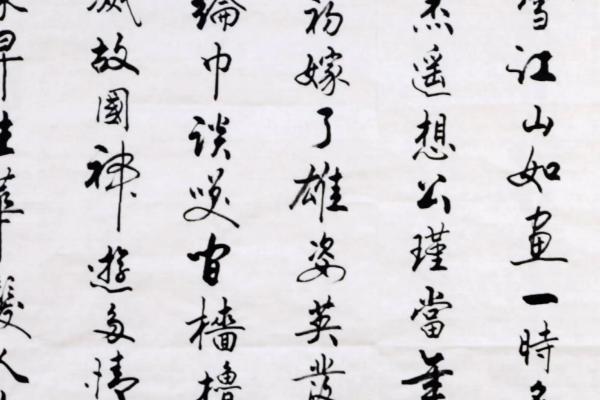 雪江山如畫一時多
杰遥想公瑾當年
初嫁了雄姿英發
綸巾談咲間檣櫓
滅故國神遊多情
早生華髮人